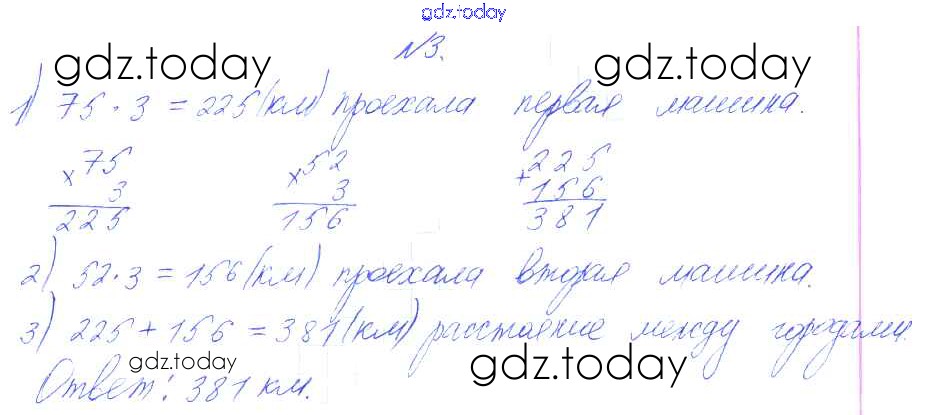 gdz.today
№3.
gdz.today gdz.today
1) 75 · 3 = 225 (км) проехала первая машина.
× 75 × 52 + 225
3 3 156
225 156 381
2) 52 · 3 = 156 (км) проехала вторая машина.
3) 225 + 156 = 381 (км) расстояние между городами.
gdz.today gdz.today
Ответ: 381 км.